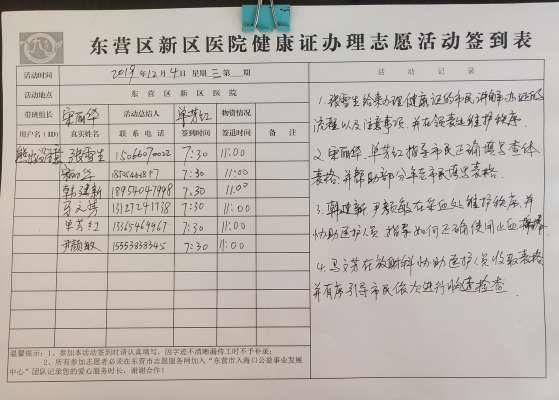 东营区新区医院健康证办理志愿活动签到表
活动时间 2019年12月4日 星期三第__期
活动地点 东营区新区医院
带班组长 宋丽华 活动总结人 单芳红 物资情况
用户名(ID) 真实姓名 联系电话 签到时间 签退时间 备注
张雪生 15066070022 7:30 11:00
7:30 11:00
韩建新 18954047998 7:30 11:00
马文芳 13127241738 7:30 11:00
单芳红 13365469467 7:30 11:00
尹颜敏 15553838345 7:30 11:00
活动记录
1. 张雪生给来办理健康证的市民讲解办证的
流程以及注意事项,并在领表处维护秩序.
2. 宋丽华、单芳红指导市民正确填写查体
表格,并帮助部分年老市民填写表格.
3. 韩建新、尹颜敏在采血处维护秩序,并
协助医护人员指导如何正确使用止血
4. 马文芳在放射科协助医护人员收取表格
并有序引导市民依次进行胸透检查.
温馨提示:1、参加本活动签到时请认真填写,因字迹不清晰漏传工时不予补录;
2、所有参加志愿者必须在东营市志愿服务网加入“东营市入海口公益事业发展
中心”团队记录您的爱心服务时长,谢谢合作!